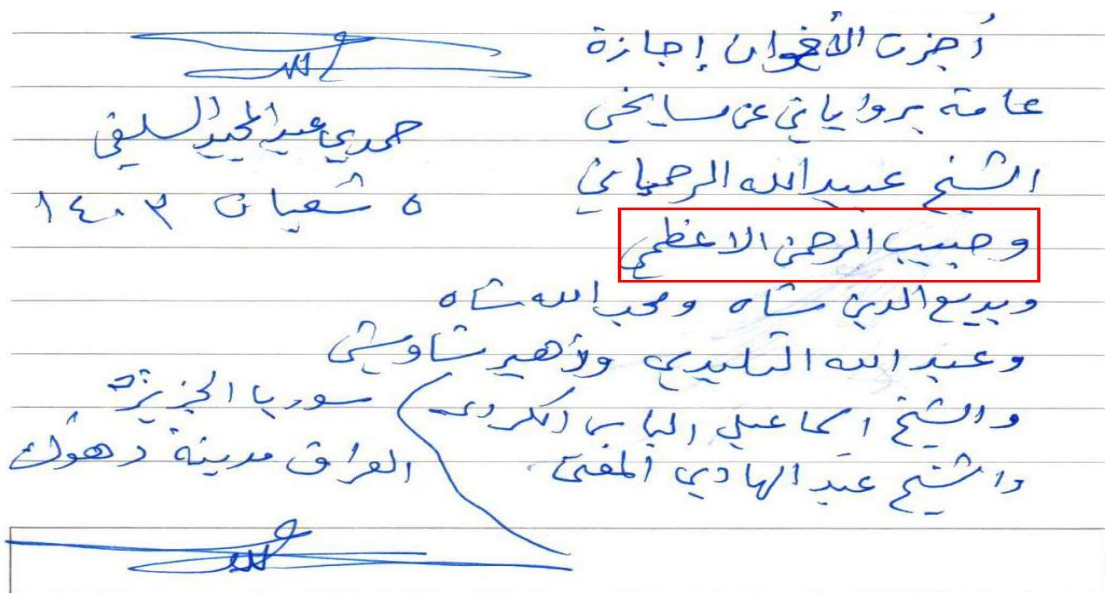 أجزت الأخوان إجازة
عامة بروایاتي عن مشايخي
الشيخ عبيد الله الرحماني
و حبيب الرحمن الاعظمي
وبديع الدين شاه ومحب الله شاه
وعبد الله التليدي وزهير شاويش
والشيخ اسماعيل الياس الكردي
والشيخ عبد الهادي المفتي
حمدي عبد المجيد السلفي
٥ شعبان ١٤٠٣
سوريا الجزيرة
العراق مدينة دهوك